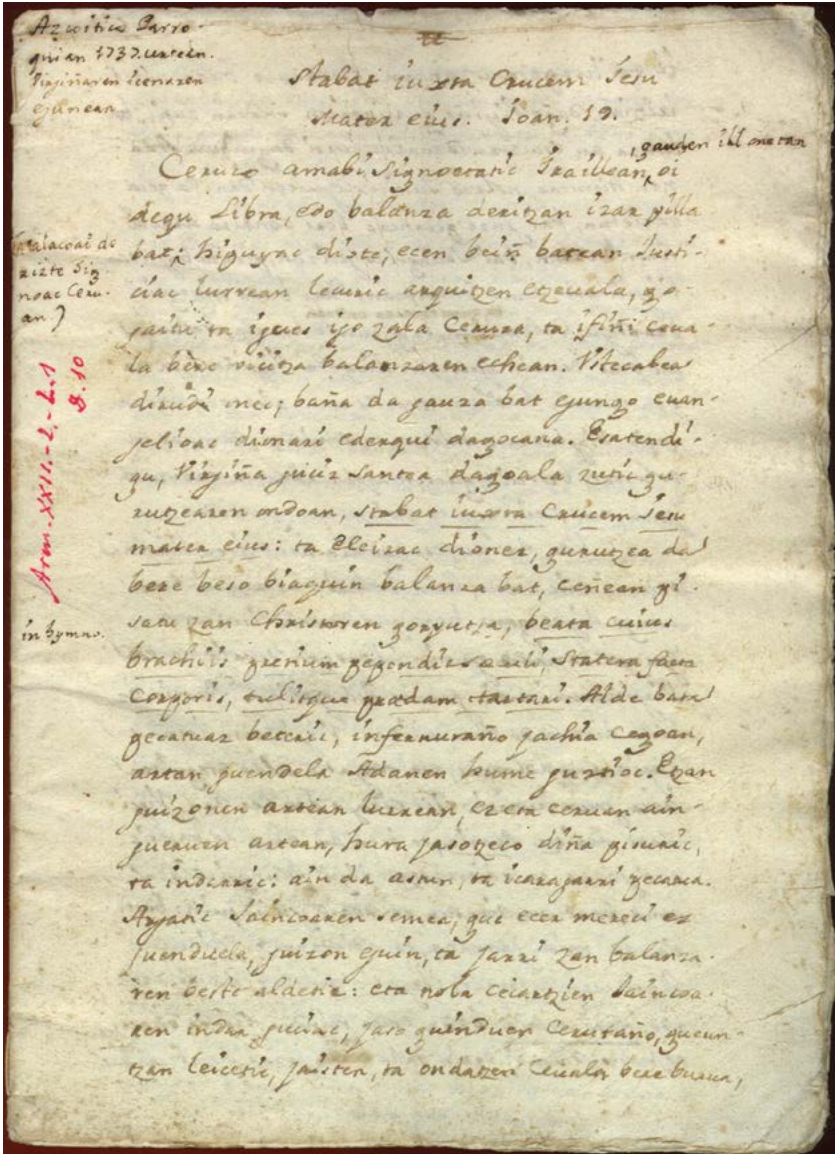 Azcoitico Parro-
quian 1737. urtean.
Virjiñaren icenaren
egunean
Stabat iuxta Crucem Iesu
Mater eius. Ioan. 19.
Ceruco amabi Signoetatic Iraillean, gauden ill onetan, oi
degu Libra, edo balanza deritzan izar pilla
bat; diote, ecen beiñ batean Justi-
ciac lurrean lecuric arquitzen etzeuala,
ta igues igo zala Cerura, ta ifiñi ceua-
la bere vicitza balanzaren echean.
dirudi neri; baña da gauza bat egungo euan-
jelioac dionari ederqui dagocana. Esatendi-
gu, Virjiña guciz Santea dagoala zutic gu-
rutzearen ondoan, stabat iuxta Crucem Iesu
mater eius: ta Eleizac dionez, gurutzea da
bere beso biaquin balanza bat, ceñean pi-
satu zan Christoren gorputza, beata cuius
brachiis pretium pependit saeculi, Statera facta
Corporis, tulitque praedam tartari. Alde batra
pecatuaz beteric, infernuraño jachia cegoan,
artan guendela Adanen hume guztioc. Etzan
guizonen artean lurrean, ez eta ceruan ain-
gueruen artean, hura jasotzeco diña pisuric,
ta indarric: ain da astun, ta icaragarri pecatua.
Argatic Jaincoaren semea, guc ecer mereci ez
guenduela, guizon eguin, ta jarri zan balanza-
ren beste aldetic: eta nola ceicartzien Jaincoa-
ren indar guciac, jaso guinduen Ceruraño, gueun-
tzan leicetic, jaisten, ta ondatzen ceuala bere burua,
(
rizte Sig-
noac Ceru-
an)
in hymno.
Arm.-XXII.-2.-L.1
D.10